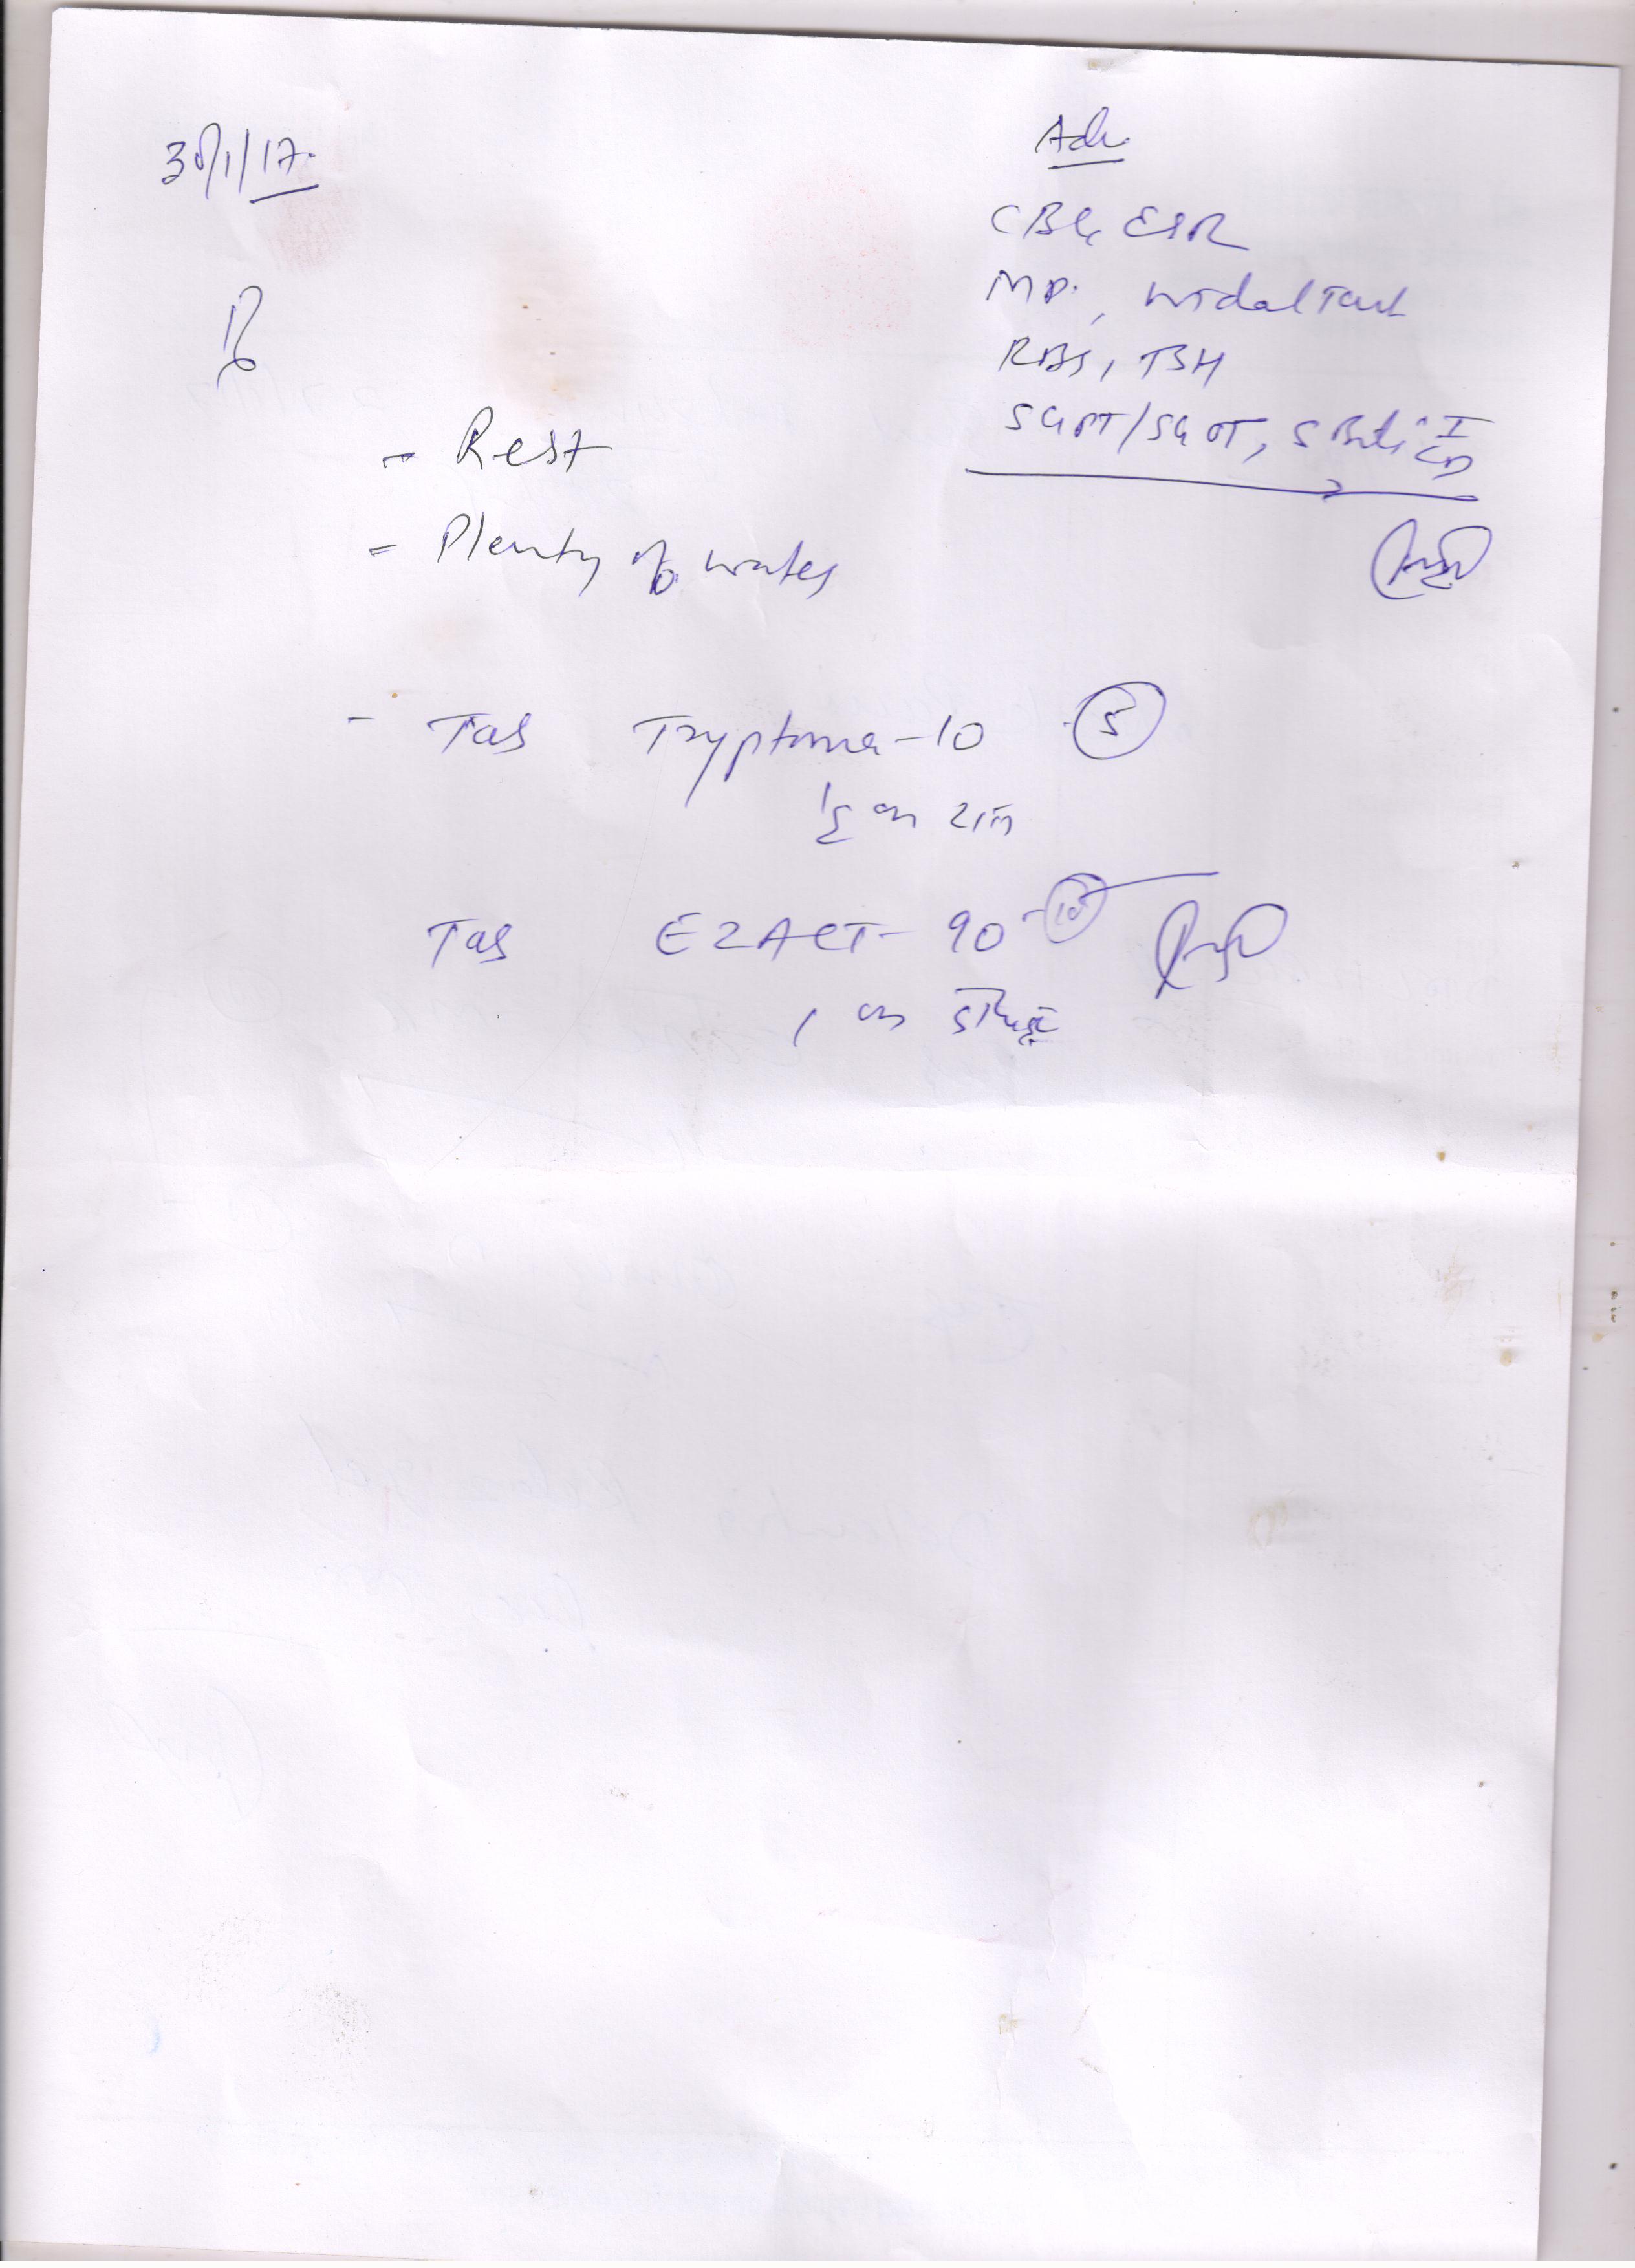 30/1/17
Adv.
CBC, ESR
MP., Widal Test
RBS, TSH
SGPT/SGOT, S Bili
- Rest
- Plenty of water
- Tab Tryptomer-10 5
Tab EZACT-90 - 10
1 on